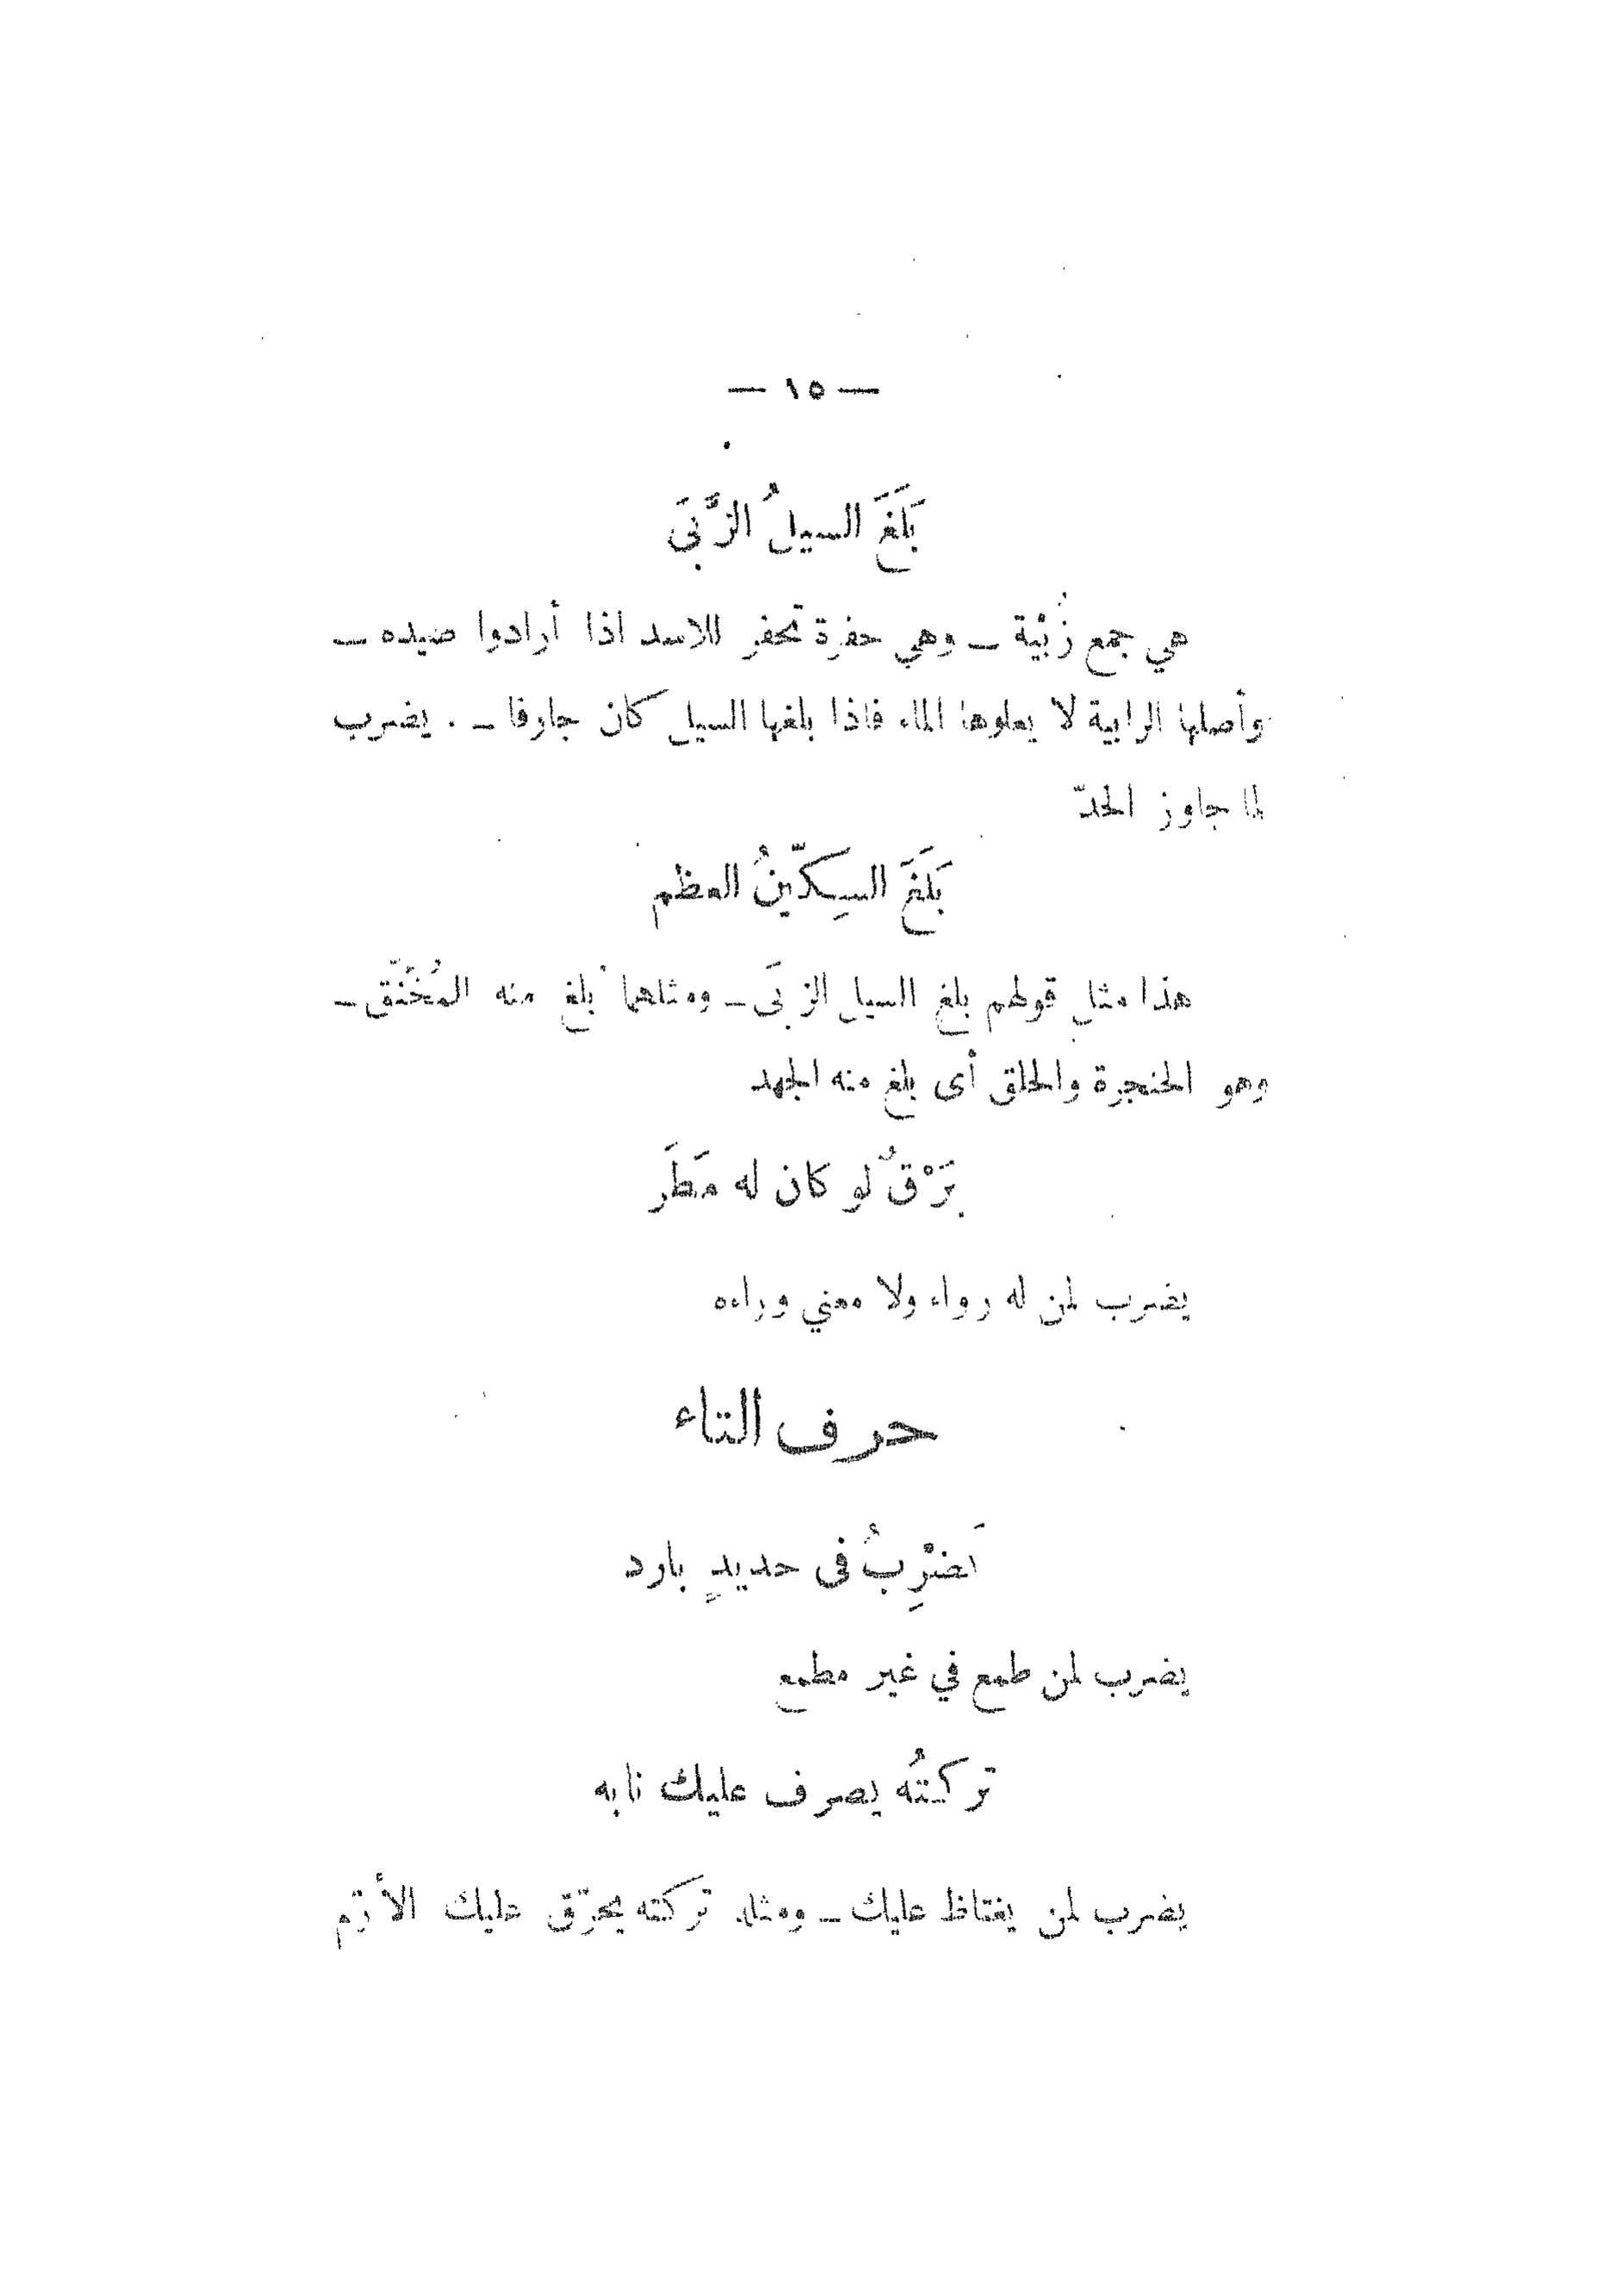 — ١٥ —
بَلَغَ السيلُ الزُّبَى
هي جمع زُبْية – وهي حفرة تحفر للاسد اذا أرادوا صيده –
وأصلها الرابية لا يعلوها الماء فاذا بلغها السيل كان جارفا – . يضرب
لما جاوز الحدّ
بَلَغَ السِكّينُ العظم
هذا مثل قولهم بلغ السيل الزبَى – ومثلهما بلغ منه المُخَنَّق –
وهو الحنجرة والحلق أى بلغ منه الجهد
بَرْقٌ لو كان له مَطَر
يضرب لمن له رواء ولا معني وراءه
حرف التاء
تَضْرِبُ فى حديدٍ بارد
يضرب لمن طمع في غير مطمع
تركتُه يصرف عليك نابه
يضرب لمن يغتاظ عليك – ومثله تركته يحرّق عليك الأرّم